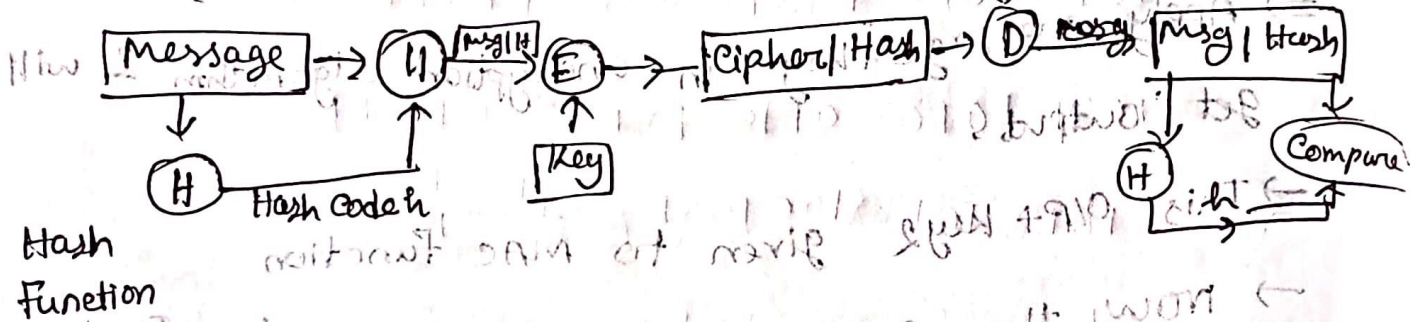 Message
||
Msg|H
E
Cipher/Hash
D
Msg | Hash
Key
H
Hash code h
H
h
Compare
Hash
Function